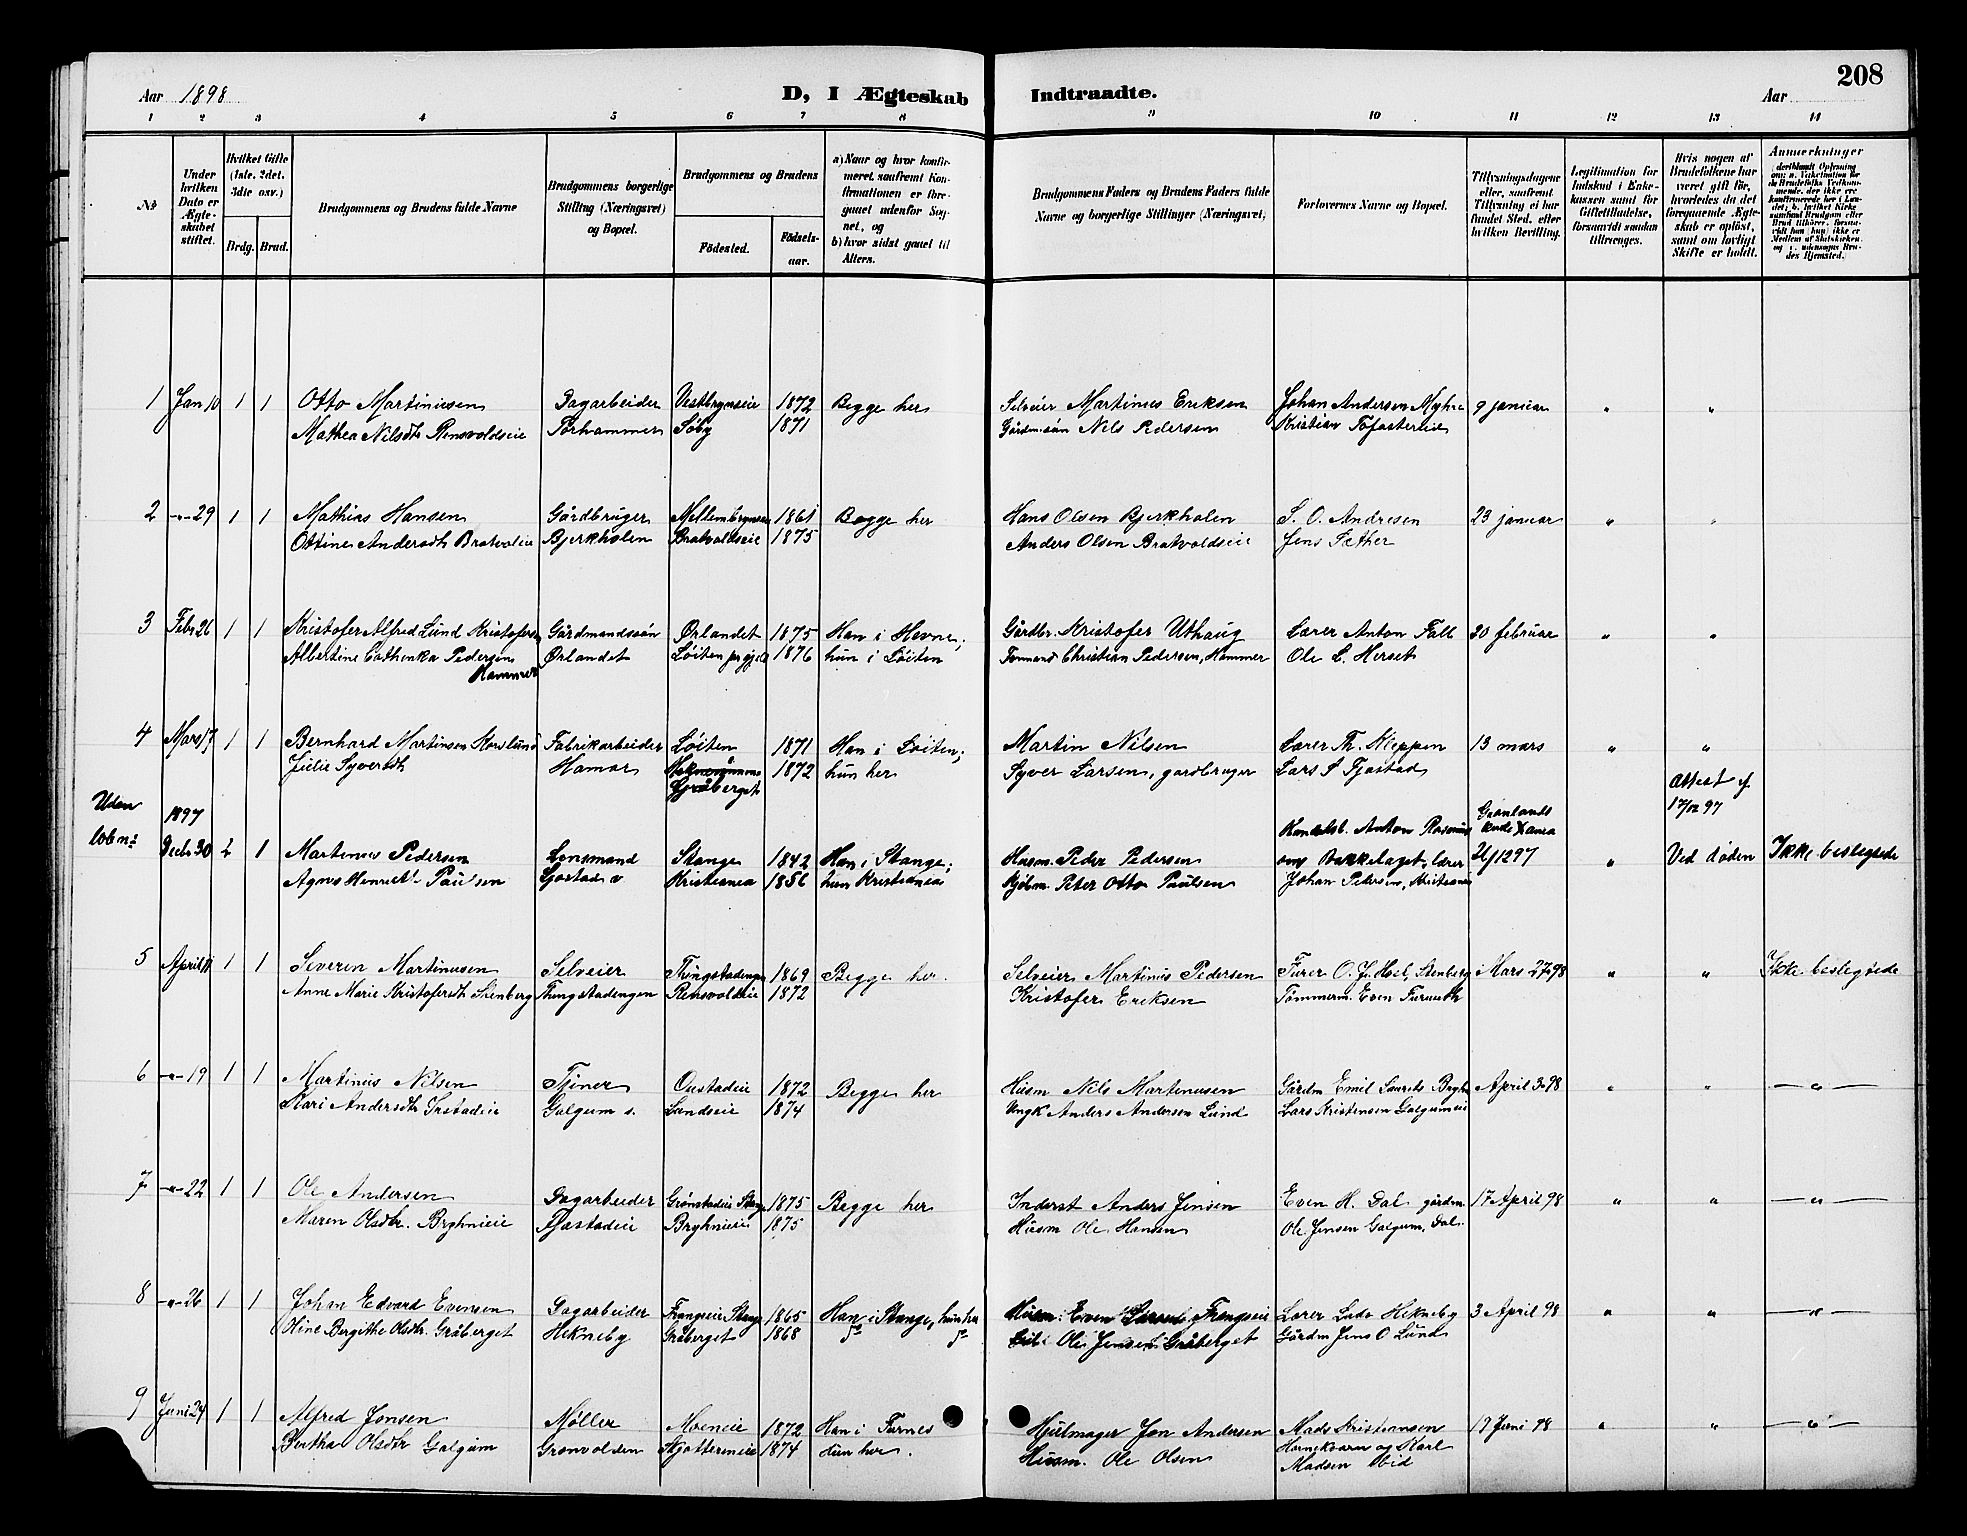 208
Aar 1898
D, I Ægteskab Indtraadte.
Aar
1 2 3 4 5 6 7 8 9 10 11 12 13 14
No
Under hvilken Dato er Ægteskabet stiftet.
Hvilket Gifte (1ste, 2det, 3die osv.)
Brdg. Brud.
Brudgommens og Brudens fulde Navne
Brudgommens borgerlige Stilling (Næringsvei) og Bopæl.
Brudgommens og Brudens
Födested.
Födselsaar.
a) Naar og hvor konfirmeret, saafremt Konfirmationen er foregaaet udenfor Sognet, og
b) hvor sidst gaaet til Alters.
Brudgommens Faders og Brudens Faders fulde Navne og borgerlige Stillinger (Næringsvei)
Forlovernes Navne og Bopæl.
Tillysningsdagene eller, saafremt Tillysning ei har fundet Sted, efter hvilken Bevilling.
Legitimation for Indskud i Enkekassen samt for Giftetilladelse, forsaavidt saadan tiltrænges.
Hvis nogen af Brudefolkene har været gift för, hvorledes da det foregaaende Ægteskab er oplöst, samt om lovligt Skifte er holdt.
Anmerkninger
1 Jan 10 1 1 Otto Martiniusen Dagarbeider Vestbrynseie 1872 Begge her Selveier Martinius Eriksen Johan Andersen Myhre 9 januar " "
Mathea Nilsdtr Rensvoldseie Torhammer Söby 1871 Gårdmandssön Nils Pedersen Kristian Tofastereie
2 -"- 29 1 1 Mathias Hansen Gårdbruger Mellembrynseie 1861 Begge her Hans Olsen Bjerkholen S. O. Andresen 23 januar " "
Ottine Andersdtr Bratvoldeie Bjerkholen Bratvoldseie 1875 Anders Olsen Bratvoldseie Jens Sæther
3 Febr 26 1 1 Kristofer Alfred Lund Kristofersen Gårdmandssön Ørlandet 1875 Han i Hevne; Gårdbr. Kristofer Uthaug Lærer Anton Fall 20 februar " "
Albertine Cathenka Pedersen Ørlandet Löiten prgjeld 1876 hun i Löiten Christian Pedersen, Hammer Ole L. Herset
Hammer
4 Mars 17 1 1 Bernhard Martinsen Fabrikarbeider Löiten 1871 Han i Löiten; Martin Nilsen Lærer Th. Kleppen 13 mars " "
Julie Syversdtr Hamar 1872 hun her Syver Larsen, gardbruger Lars S Tjostad
Gråberget
Uden lobno 1897 Grønlands Attest af 17/12 97
Decbr 30 2 1 Martinus Pedersen Lensmand Stange 1842 Han i Stange; Husm. Peder Pedersen Anton 26/12 97 " Ved döden Ikke beslegtede
Paulsen Kristiania 1856 hun Kristiania Peter Otto Paulsen Johan Petersen, Kristiania
5 April 11 1 1 Severin Martinusen Selveier Thingstadengen 1869 Begge her. Selveier Martinus Pedersen Furer O. J. Hoel, Stenberg Mars 27 98 " " Ikke beslegtede
Anne Marie Kristofersdtr Stenberg Thingstadengen Rensvoldeie 1872 Kristofer Eriksen Tömmerm. Even Furuseth
6 -"- 19 1 1 Martinus Nilsen Tjener Oustadeie 1872 Begge her Husm Nils Martinusen Gårdm Emil Laurits Bryhn April 3 98 " " -"-
Kari Andersdtr Galgum s. Lundseie 1874 Ungk Anders Andersen Lund Lars Kristensen Galgumeie
7 -"- 22 1 1 Ole Andersen Dagarbeider Grönstadeie Stange 1875 Begge her Inderst Anders Jensen Even H. Dal gårdm 17 April 98 " " -"-
Maren Olsdtr. Bryhnieie Tjostadeie Bryhnieie 1875 Husm Ole Hansen Ole Jensen Galgum, Dal.
8 -"- 26 1 1 Johan Edvard Evensen Dagarbeider Frangseie Stange 1865 Han i Stange, hun her Husm: Even Larsen, Frangseie Lærer Hekneby 3 April 98 " " -"-
Oline Bergithe Olsdtr. Gråberget Hekneby Gråberget 1868 Ole Jensen Gråberget Gårdm Jens O Lund
9 Juni 24 1 1 Alfred Jonsen Möller Moeneie 1872 Han i Furnes Hjulmager Jon Andersen Mads Kristiansen 19 Juni 98 " " -"-
Berthe Olsdtr Galgum Grönvolden 1874 Hun her. Husm. Ole Olsen Hornekvern og Karl
Madsen ibid